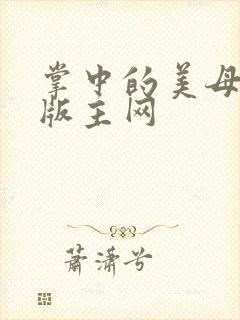 掌中的美母
版主网
萧潇兮